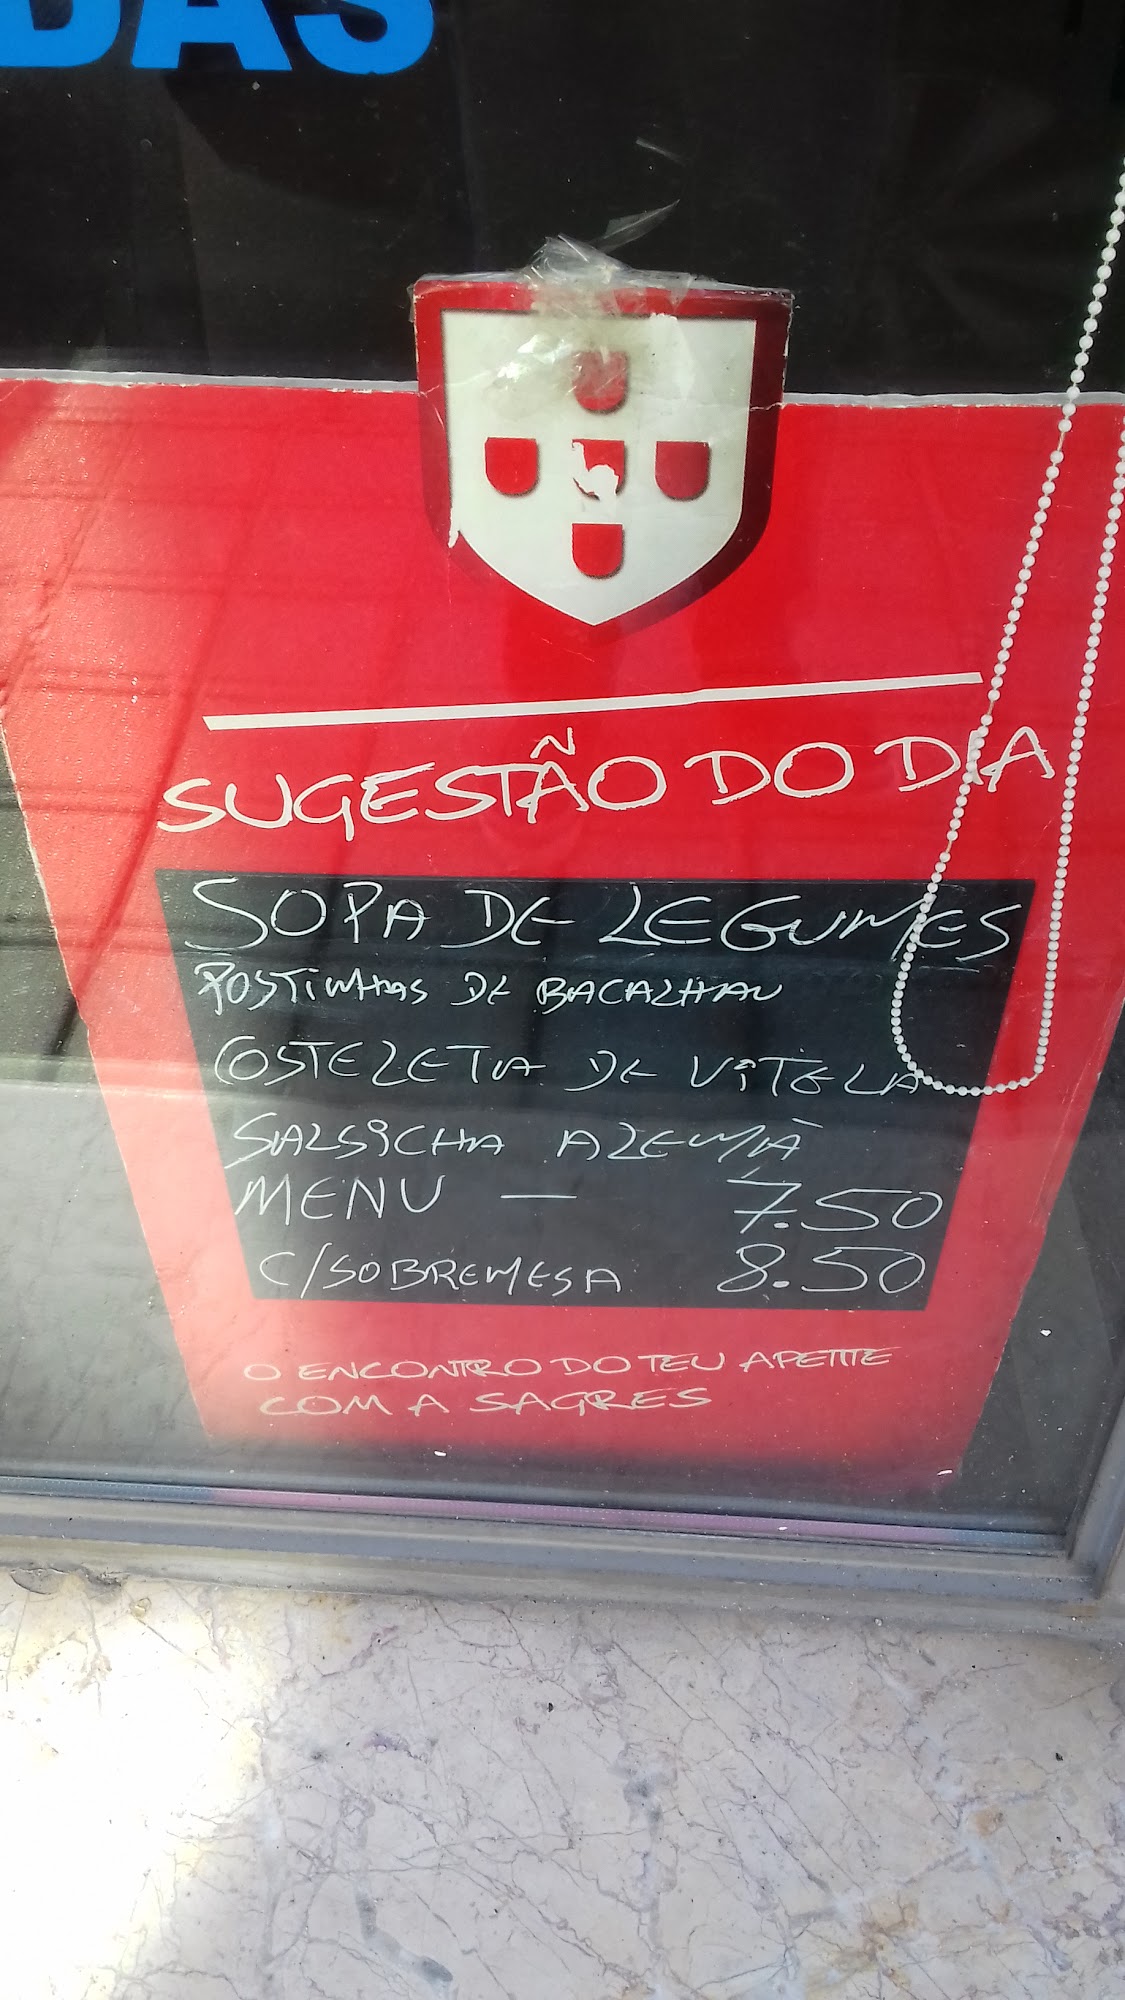 DAS
SUGESTÃO DO DIA
SOPA DE LEGUMES
POSTINHAS DE BACALHAU
COSTELETA DE VITELA
SALSICHA ALEMÃ
MENU — 7.50
C/SOBREMESA 8.50
O ENCONTRO DO TEU APETITE
COM A SAGRES